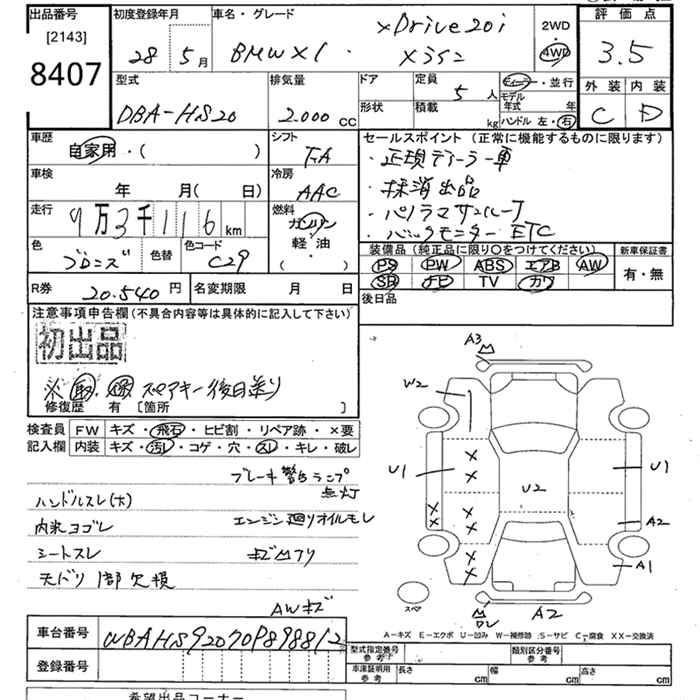 出品番号
[2143]
8407
初度登録年月
28年 5月
車名・グレード
BMW X1 xDrive20i
Xライン
2WD
4WD
評価点
3.5
外装 内装
C D
型式
DBA-HS20
排気量
2.000 CC
ドア
形状
定員
5 人
積載
kg
ディーラー・並行
モデル年式 年
ハンドル 左・右
車歴
自家用・( )
シフト
FA
車検
年 月( 日)
冷房
AAC
走行
9万3千116 km
燃料
ガソリン
軽・油
( )
色
ブロンズ
色替
色コード
C29
R券
20.540 円
名変期限 月 日
セールスポイント(正常に機能するものに限ります)
・正規ディーラー車
・抹消出品
・パノラマサンルーフ
・バックモニター ETC
装備品(純正品に限り〇をつけてください)
新車保証書
PS PW ABS エアB AW
SR ナビ TV カワ
有・無
後日品
注意事項申告欄(不具合内容等は具体的に記入して下さい)
初出品
※ 取、保 スペアキー後日送り
修復歴 有[箇所 ]
検査員記入欄
FW キズ・飛石・ヒビ割・リペア跡・×要
内装 キズ・汚レ・コゲ・穴・スレ・キレ・破レ
ブレーキ警告ランプ
点灯
ハンドルスレ(大)
内装ヨゴレ
エンジン廻りオイルモレ
シートスレ
キズ凹アリ
天バリ1部欠損
AWキズ
車台番号
WBAHS92070P898812
登録番号
希望出品コーナー
A3
凹
W2
U1
U2
U1
A2
A1
A2
凹
スペア
A-キズ E-エクボ U-凹み W-補修跡 S-サビ C-腐食 XX-交換済
型式指定番号
参考
類別区分番号
参考
車庫証明用
参考
長さ cm
幅 cm
高さ cm